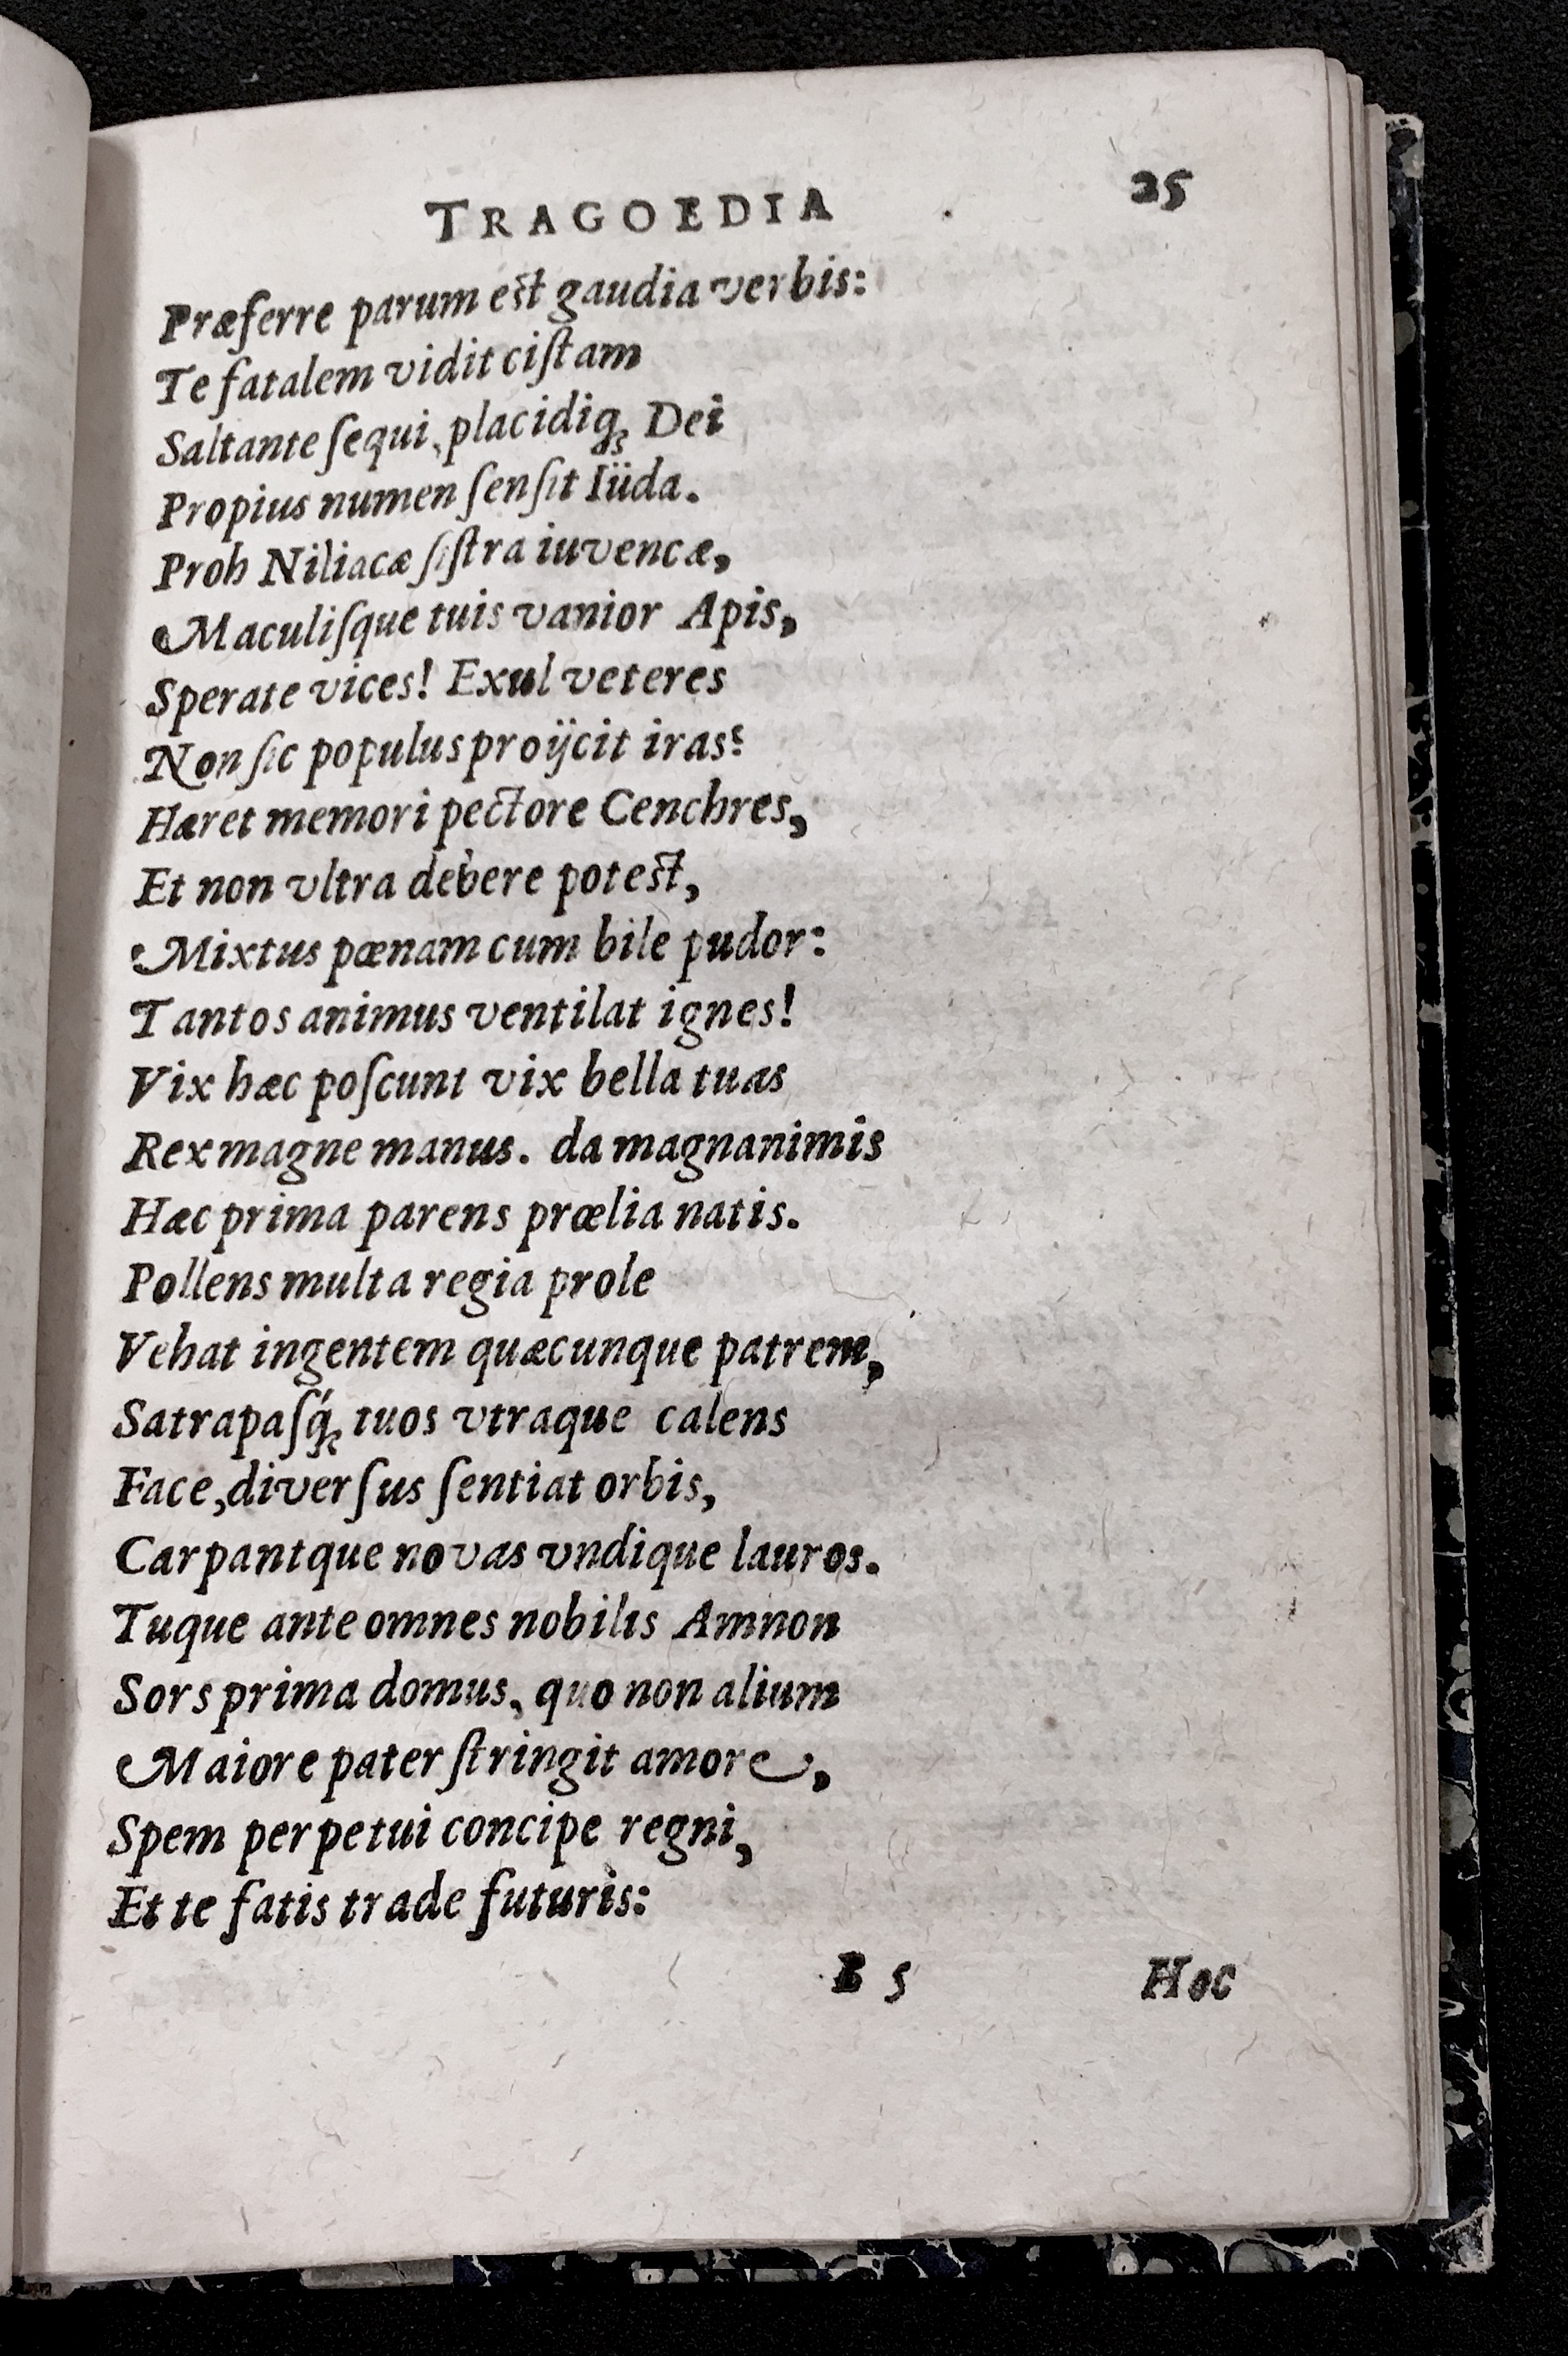 TRAGOEDIA 25
Præferre parum est gaudia verbis:
Te fatalem vidit ciſtam
Saltante ſequi, placidiq; Dei
Propius numen ſenſit Iüda.
Proh Niliacæ ſiſtra iuvencæ,
Maculiſque tuis vanior Apis,
Sperate vices! Exul veteres
Non ſic populus proijcit iras:
Hæret memori pectore Cenchres,
Et non vltra debere potest,
Mixtus pœnam cum bile pudor:
Tantos animus ventilat ignes!
Vix hæc poſcunt vix bella tuas
Rex magne manus. da magnanimis
Hæc prima parens prœlia natis.
Pollens multa regia prole
Vehat ingentem quæcunque patrem,
Satrapaſq́; tuos vtraque calens
Face, diverſus ſentiat orbis,
Carpantque novas vndique lauros.
Tuque ante omnes nobilis Amnon
Sors prima domus, quo non alium
Maiore pater ſtringit amore,
Spem perpetui concipe regni,
Et te fatis trade futuris:
B 5 Hoc